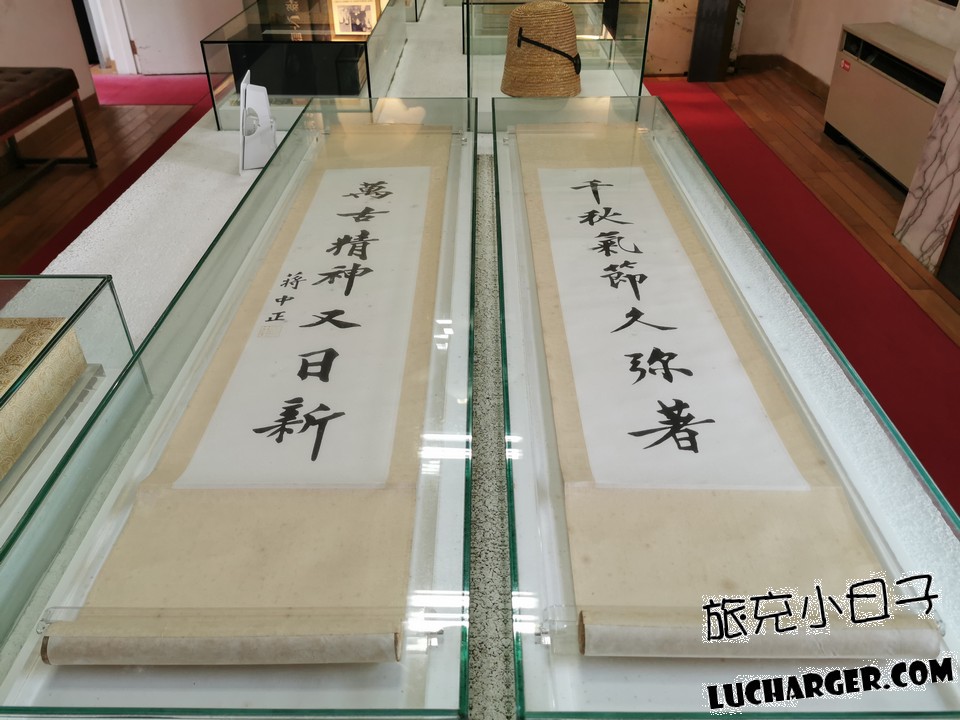 千秋氣節久弥著
萬古精神又日新
蔣中正
旅充小日子
LUCHARGER.COM